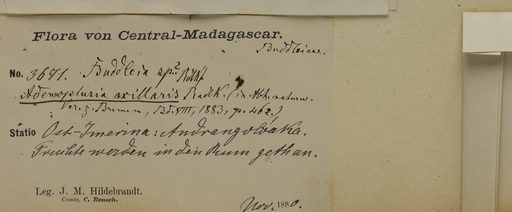 Flora von Central-Madagascar.
Buddleieae.
No. 3641. Buddleia sp.? Radlk
Adenoplusia axillaris Radlk. (in Abh. naturw.
Ver. z. Bremen, Bd. VIII, 1883, p. 462.)
Statio Ost-Imerina: Andrangoloaka.
Früchte werden in den Rum gethan.
Leg. J. M. Hildebrandt.
Comm. C. Rensch.
Nov. 1880.